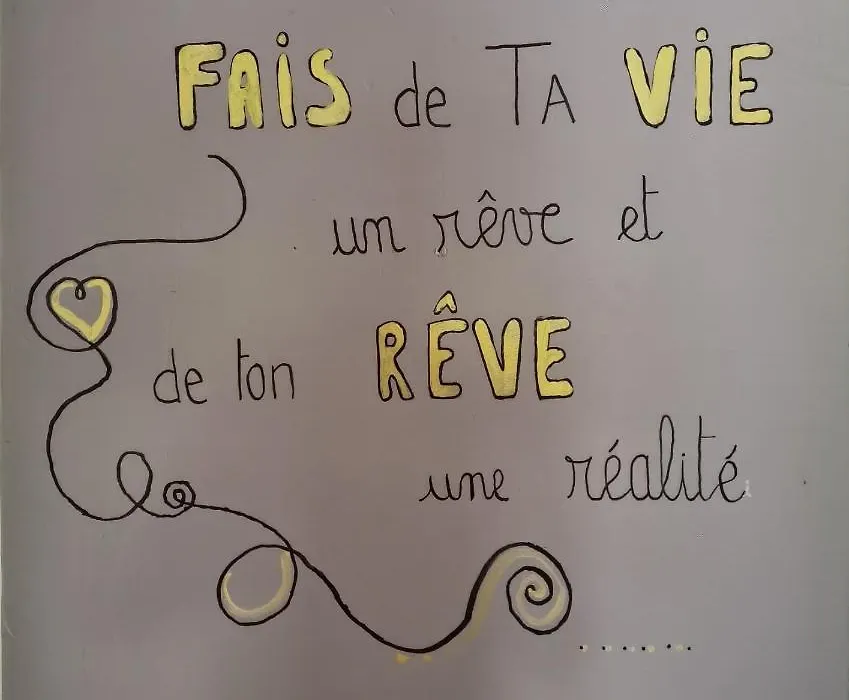 FAiS de TA ViE
un rêve et
de ton RÊVE
une réalité
.......